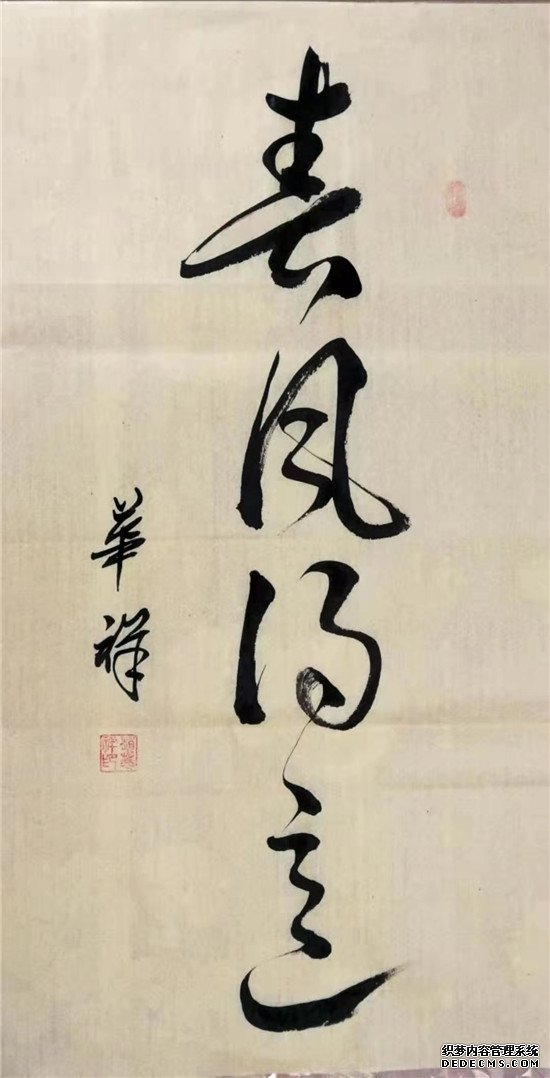 春风得意
華祥
织梦内容管理系统
DEDECMS.COM